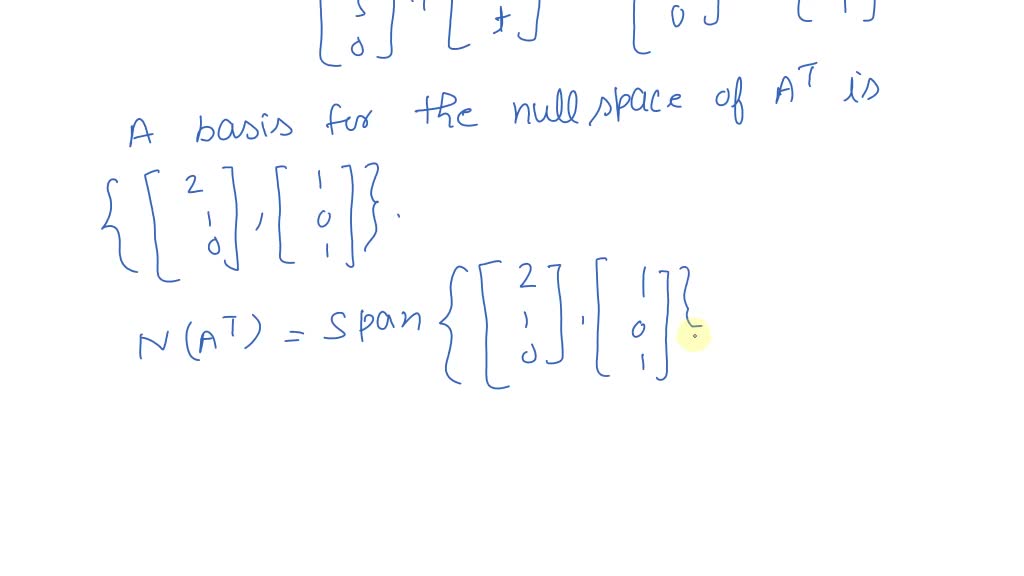 [ s 0 ] + [ t ] [ 0 ] [ 1 ]
A basis for the null space of A^T is
{ [ 2 1 0 ] , [ 1 0 1 ] } .
N(A^T) = Span { [ 2 1 0 ] , [ 1 0 1 ] }